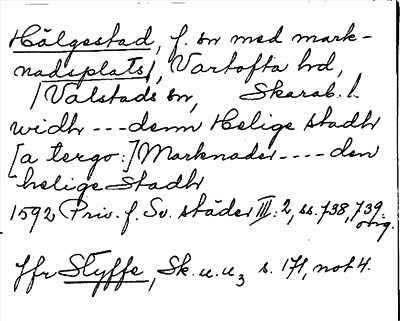 Hälgestad, f. sn med mark-
nadsplats/, Vartofta hd,
/Valstads sn, Skarab. l.
widh --- denn Helige stadh
[a tergo:] Marknader ---- den
helige Stadh
1592 Priv. f. Sv. städer III:2, ss. 738, 739.
orig.
Jfr Styffe, Sk. u. u3 s. 171, not 4.